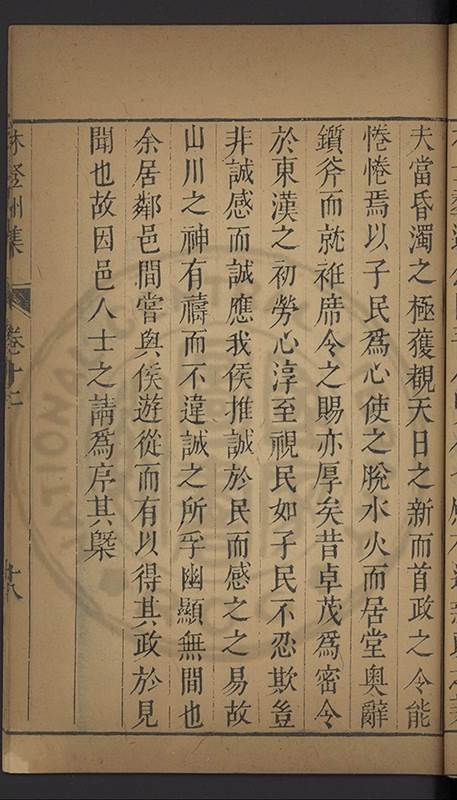 夫當昏濁之極獲覩天日之新而首政之令能
惓惓焉以子民爲心使之脫水火而居堂奧辭
鑕斧而就袵席令之賜亦厚矣昔卓茂爲密令
於東漢之初勞心淳至視民如子民不忍欺豈
非誠感而誠應我侯推誠於民而感之之易故
山川之神有禱而不違誠之所孚幽顯無間也
余居鄰邑間嘗與侯遊從而有以得其政於見
聞也故因邑人士之請爲序其槩
林登州集 卷十二 十八